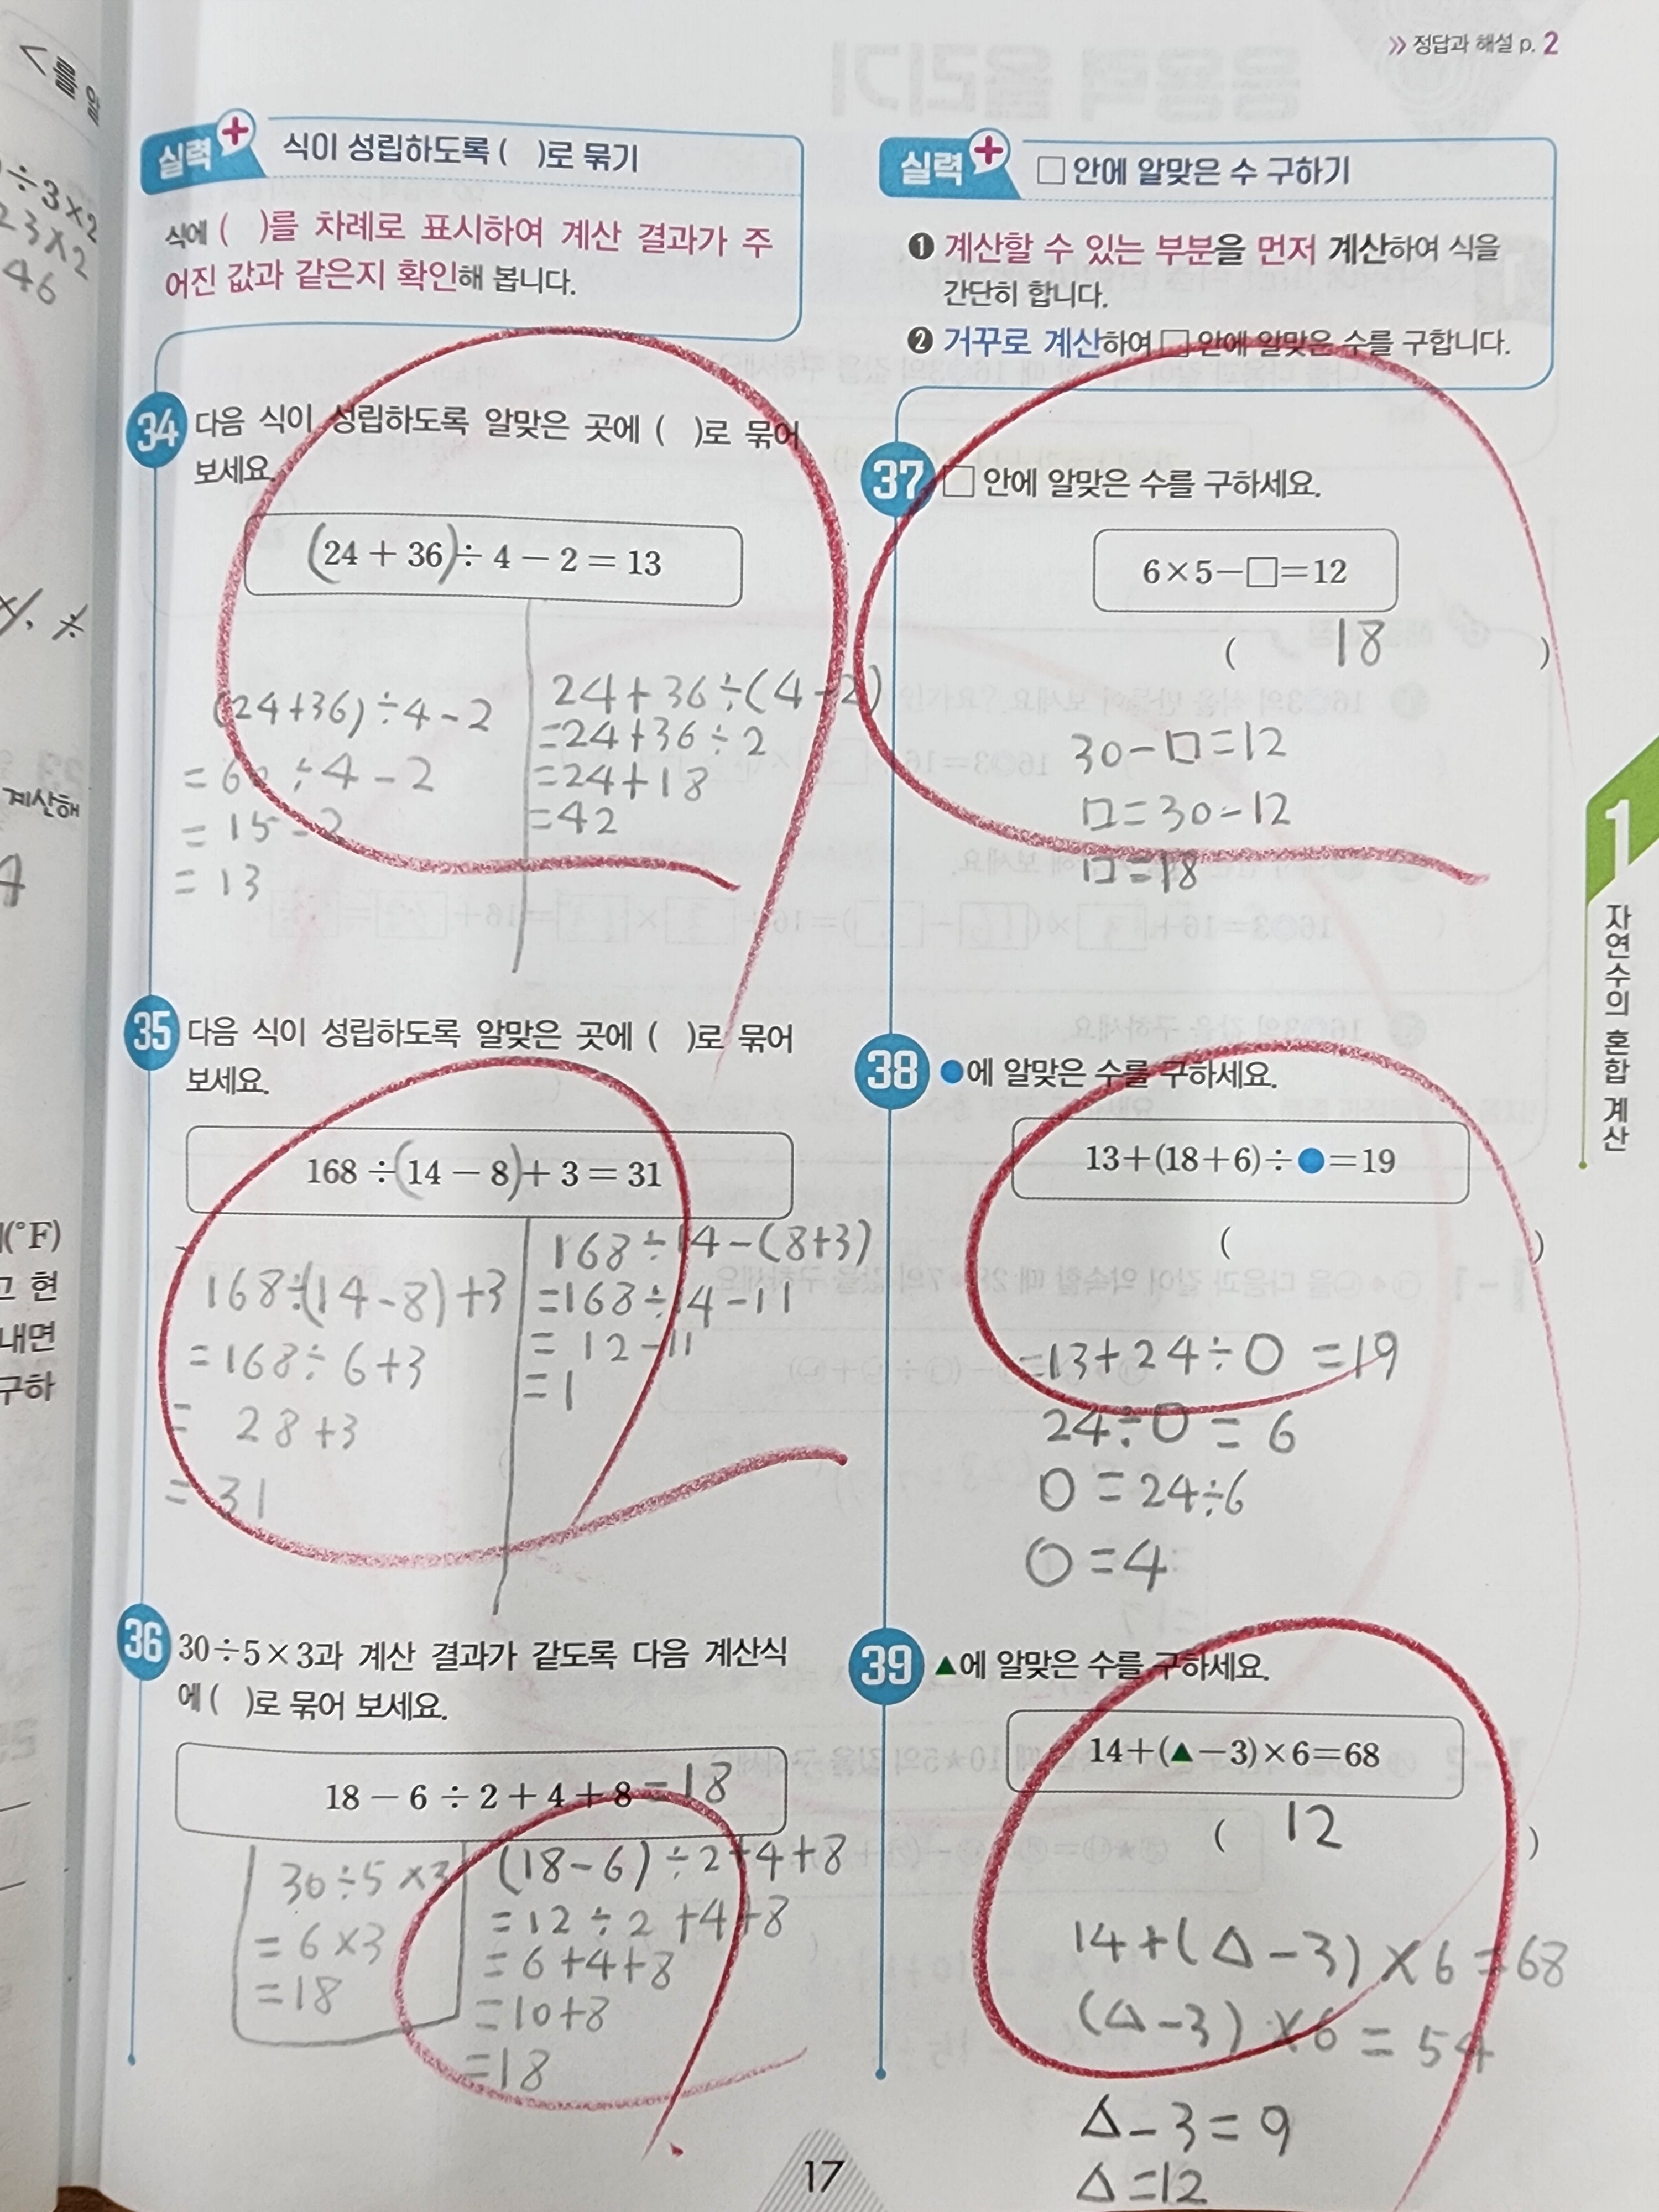 >> 정답과 해설 p. 2
<를 알
÷3×2
23×2
46
계산해
(°F)
고 현
내면
구하
실력+ 식이 성립하도록 ( )로 묶기
식에 ( )를 차례로 표시하여 계산 결과가 주
어진 값과 같은지 확인해 봅니다.
34 다음 식이 성립하도록 알맞은 곳에 ( )로 묶어
보세요.
(24 + 36) ÷ 4 − 2 = 13
(24+36)÷4-2
= 60÷4-2
= 15-2
= 13
24+36÷(4-2)
=24+36÷2
=24+18
=42
35 다음 식이 성립하도록 알맞은 곳에 ( )로 묶어
보세요.
168 ÷ (14 − 8) + 3 = 31
168÷(14-8)+3
=168÷6+3
= 28+3
= 31
168÷14-(8+3)
=168÷14-11
= 12-11
= 1
36 30÷5×3과 계산 결과가 같도록 다음 계산식
에 ( )로 묶어 보세요.
18 − 6 ÷ 2 + 4 + 8 =18
30÷5×3
= 6×3
=18
(18-6)÷2+4+8
=12÷2+4+8
=6+4+8
=10+8
=18
실력+ □ 안에 알맞은 수 구하기
❶ 계산할 수 있는 부분을 먼저 계산하여 식을
간단히 합니다.
❷ 거꾸로 계산하여 □ 안에 알맞은 수를 구합니다.
37 □ 안에 알맞은 수를 구하세요.
6×5−□=12
( 18 )
30-□=12
□=30-12
□=18
38 ●에 알맞은 수를 구하세요.
13+(18+6)÷●=19
( )
=13+24÷O =19
24÷O = 6
O =24÷6
O =4
39 ▲에 알맞은 수를 구하세요.
14+(▲−3)×6=68
( 12 )
14+(△-3)×6=68
(△-3)×6=54
△-3=9
△=12
1
자연수의 혼합 계산
17